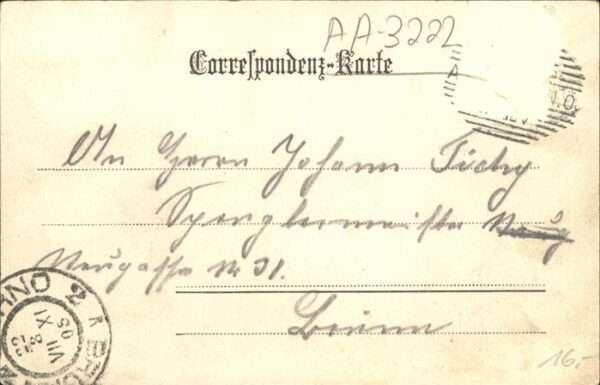 AA-3222
Correspondenz-Karte
An Herrn Johann Tichy
Spenglermeister
Neugasse Nr 31.
Brünn
BRÜNN 2 BRNO
16.-